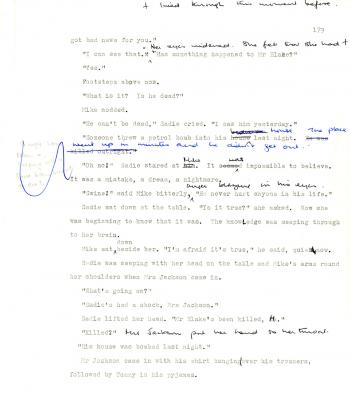 + lived through this moment before.
179
got bad news for you."
Her eyes widened. She felt
"I can see that." "Has something happened to Mr Blake?"
"Yes."
Footsteps above now.
"What is it? Is he dead?"
Mike nodded.
"He can't be dead," Sadie cried. "I saw him yesterday."
house. The place
"Someone threw a petrol bomb into his house last night.
went up in minutes and he didn't get out.
Mike was
"Oh no!" Sadie stared at him. It seemed impossible to believe.
It was a mistake, a dream, a nightmare.
anger in his eyes.
"Swine!" said Mike bitterly, "He never hurt anyone in his life."
Sadie sat down at the table. "Is it true?" she asked. Now she
was beginning to know that it was. The knowledge was seeping through
to her brain.
down
Mike sat beside her. "I'm afraid it's true," he said, quiet now.
Sadie was weeping with her head on the table and Mike's arms round
her shoulders when Mrs Jackson came in.
"What's going on?"
"Sadie's had a shock, Mrs Jackson."
Sadie lifted her head. "Mr Blake's been killed, M."
"Killed?" Mrs Jackson put her hand to her throat.
"His house was bombed last night."
Mr Jackson came in with his shirt hanging over his trousers,
followed by Tommy in his pyjamas.